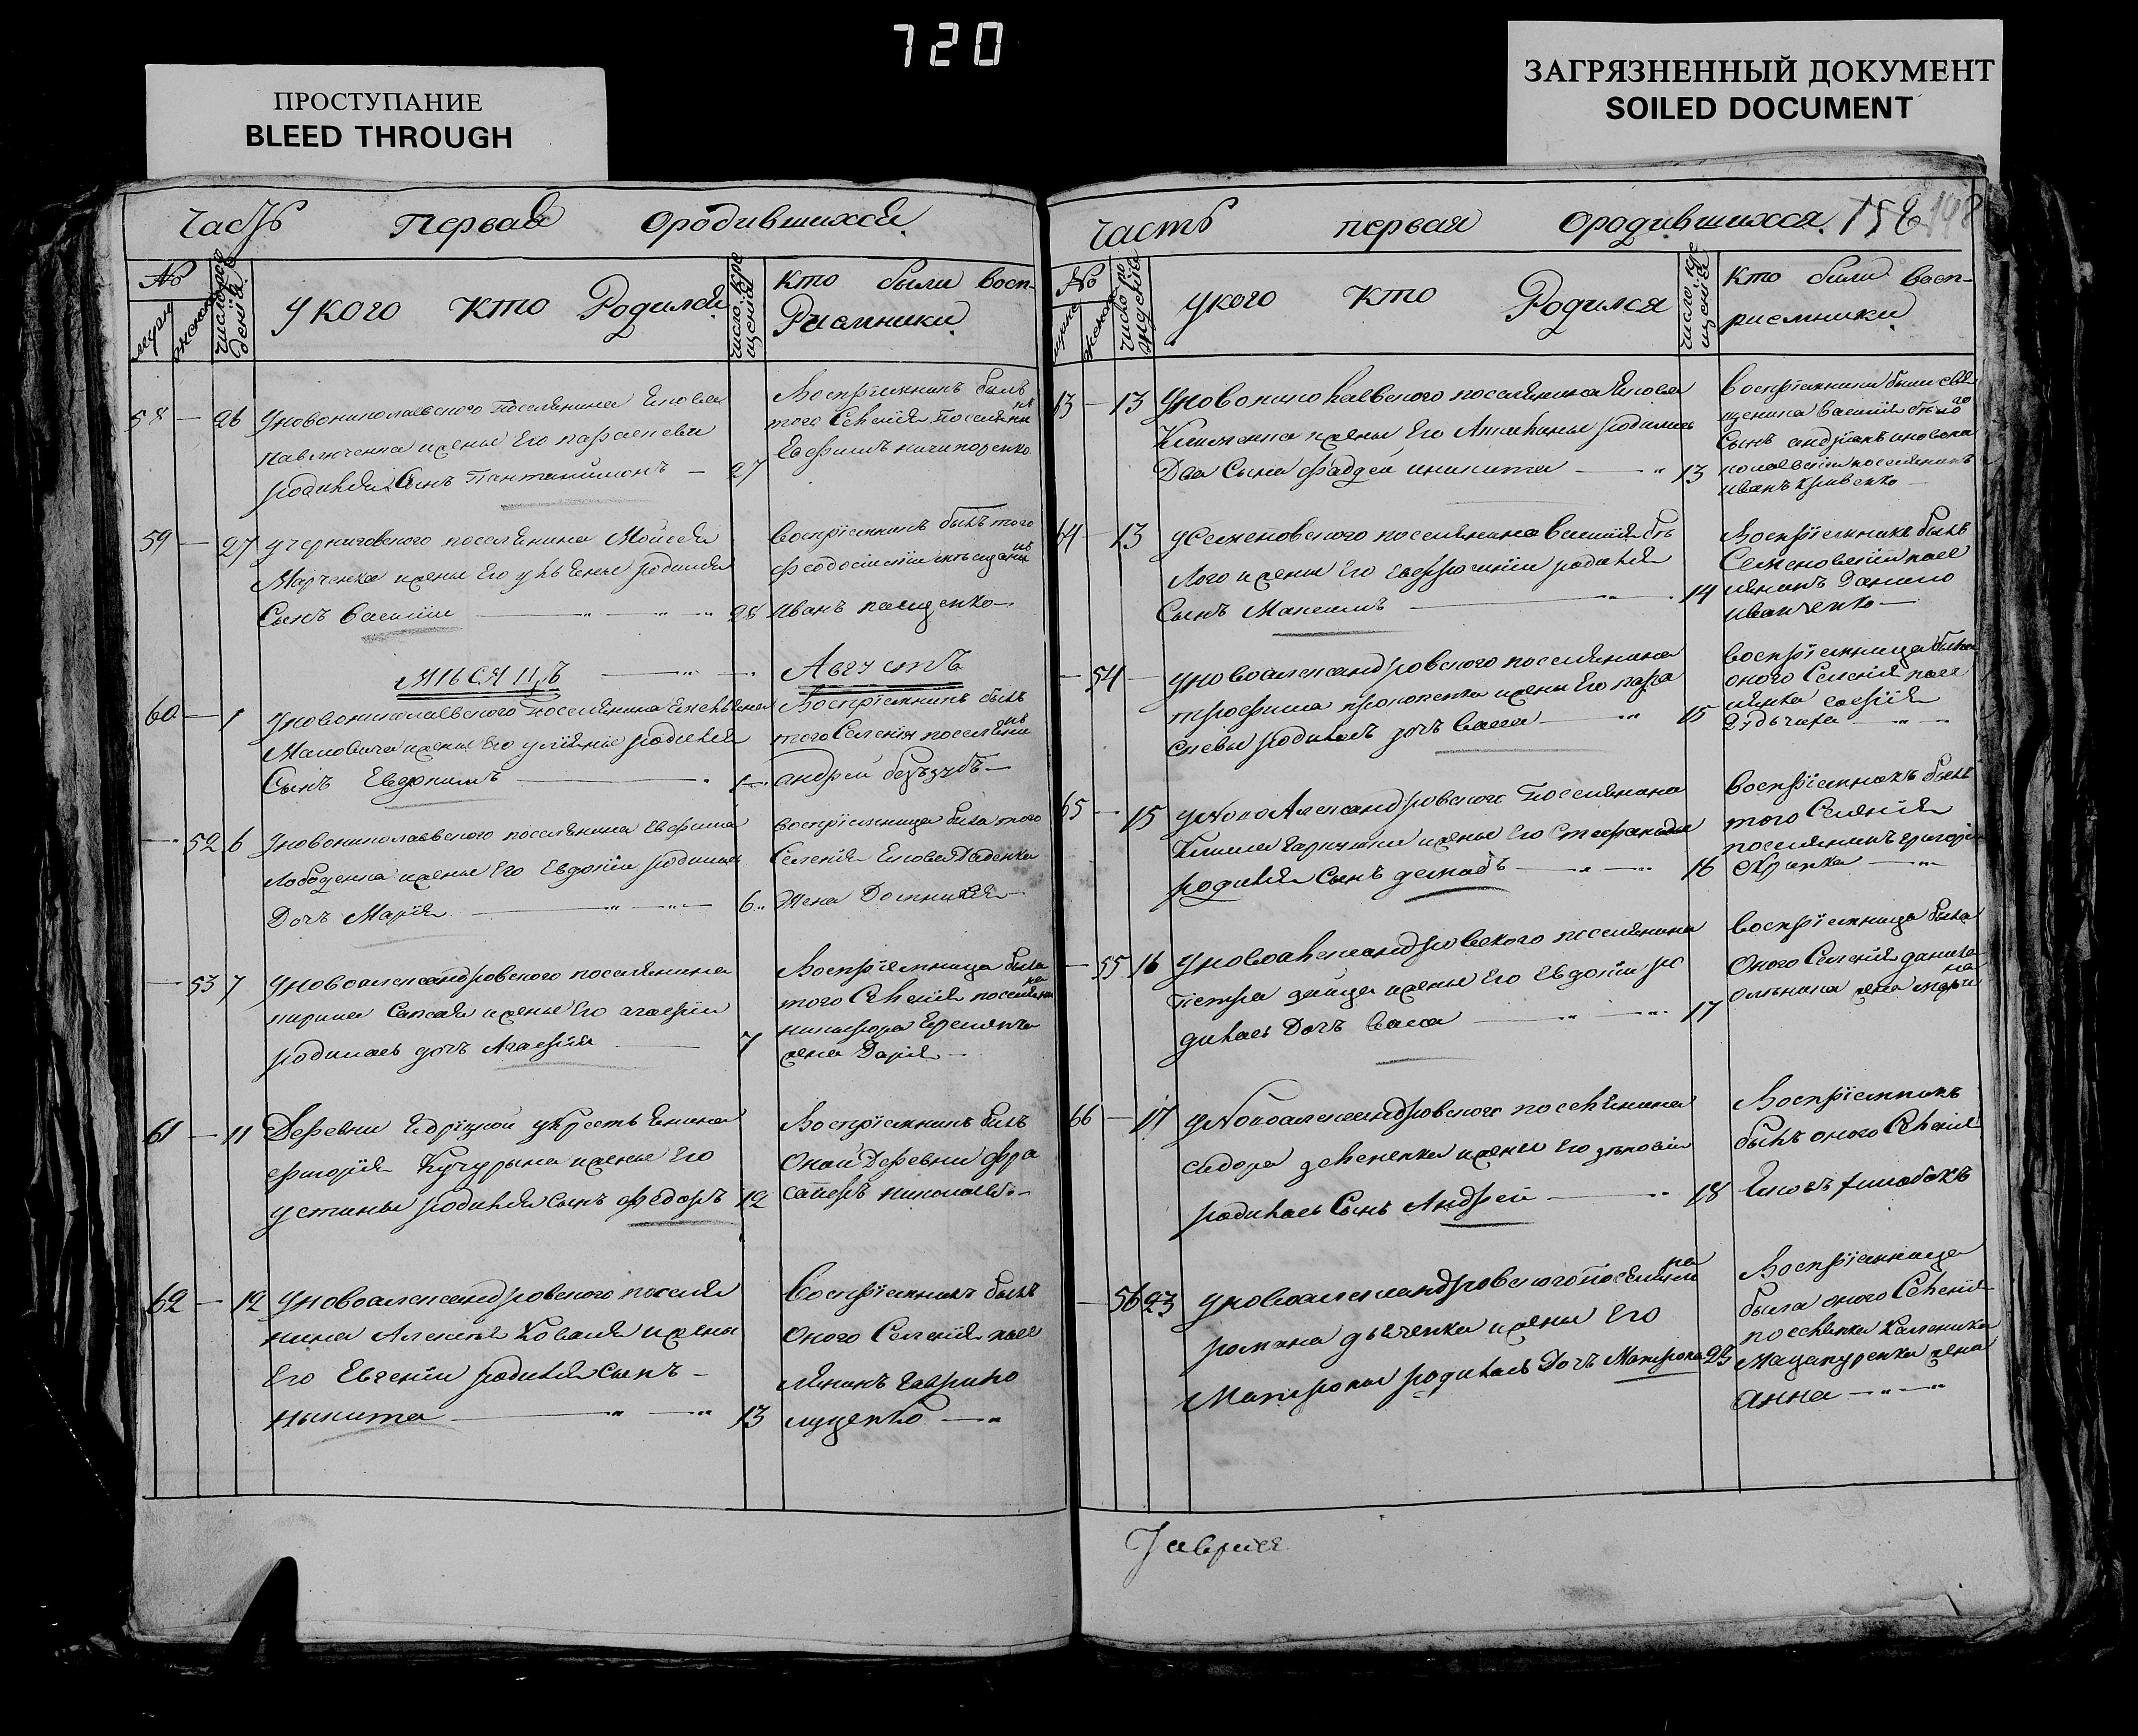 720
ПРОСТУПАНИЕ
BLEED THROUGH
ЗАГРЯЗНЕННЫЙ ДОКУМЕНТ
SOILED DOCUMENT
Часть Первая Ородившихся.
№
мужск женска
число рождения
укого кто Родился
число крещения
кто были восп-
Риемники.
58 — 26 Уновониколаевского поселянина Якова
Павлюченка ижены Его параскевы
родился Сынъ Пантелиимонъ — 27
Воспріемникъ былъ
того Селенія поселянинъ
Евфимъ ничипоренко
59 — 27 учерниговского поселянина Моисея
Марченка ижены Его ульяны родился
Сынъ Василій 28
Воспріемникъ былъ того
Иванъ пащенко
МѢСЯЦЪ Августъ
60 — 1 Уновониколаевского Поселянина
Маловича ижены Его уліяніи родился
Сынъ Евдокимъ 1
Воспріемникъ былъ
того Селенія поселянинъ
андрей безъзубъ
— 52 6 Уновониколаевского поселянина Евфима
Лободенка ижены Его Евдокіи родилась
Дочь Марія 6
Воспріемница была того
Селенія Якова Даденка
Жена Домникія
— 53 7 Уновоалександровского поселянина
кирила Сапсая ижены Его агафіи
родилась дочь Агафія 7
Воспріемница была
того Селенія поселянина
никифора Еременка
жена Дарія
61 — 11 Деревни Едрицкой укрестьянина
григорія Кучурына ижены Его
устины родился сынъ Федоръ 12
Воспріемникъ былъ
Оной Деревни
николаевъ
62 — 12 Уновоалександровского поселя
нина Алексея Коваля ижены
Его Евгеніи родился сынъ —
никита 13
Воспріемникъ былъ
Оного Селенія посе
лянинъ гаврило
луценко
Часть первая Ородившихся. 158 148
№
мужск женска
число рождения
укого кто Родился
число крещения
кто были восп-
риемники.
63 — 13 Уновониколаевского поселянина Якова
Клименка ижены Его Акилины родились
Два Сына фаддей иникита 13
воспріемники были свя
щеника василія бѣлого
Сынъ андріанъ иновони
колаевскій поселянинъ
иванъ кривенко
64 — 13 уСеменовского поселянина василія бѣ
лого ижены Его Евфросиніи родился
Сынъ Максимъ 14
Воспріемникъ былъ
Семеновскій посе
лянинъ Данило
иванченко
— 54 Уновоалександровского поселянина
трофима прокопенка ижены Его пара
скевы родилась дочь васса 15
воспріемница была
оного Селенія посе
лянка софія
65 — 15 уНовоАлександровского Поселянина
ижены Его Стефаниды
родился Сынъ демидъ 16
воспріемникъ былъ
того Селенія
поселянинъ григорій
Скрипка
— 55 16 Уновоалександровского поселянина
Петра зайца ижены Его Евдокіи ро
дилась Дочь васса 17
воспріемница была
Оного Селенія данила
66 — 17 уНовоалександровского поселянина
сидора зеленска ижены Его зѣновіи
родилась Сынъ Андрей 18
Воспріемникъ
былъ оного Селенія
Яковъ
— 56 23 Уновоалександровского поселянина
романа дяченка ижены Его
Матроны родилась Дочь Матрона 23
Воспріемница
была оного Селенія
поселянка каленика
Мацапуренка жена
анна